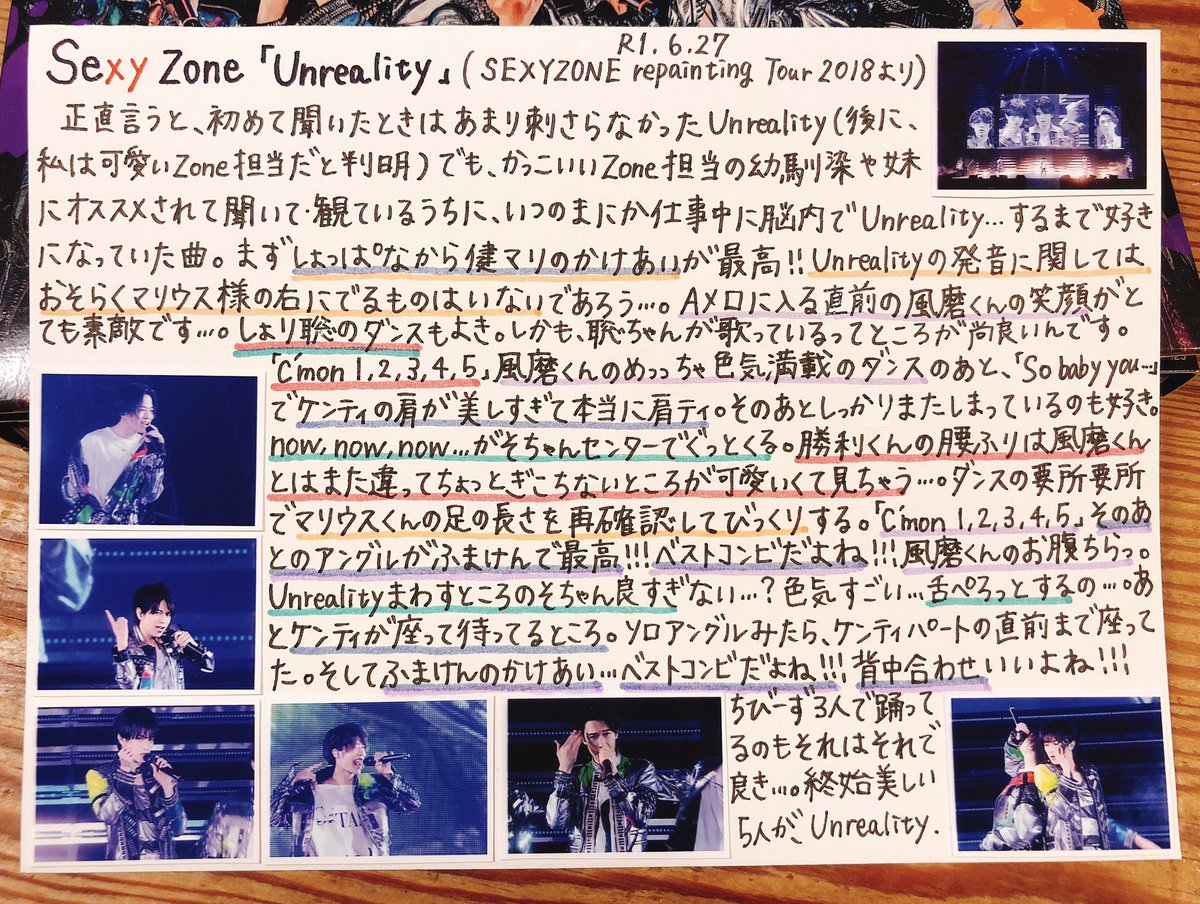 R1.6.27
Sexy Zone「Unreality」(SEXYZONE repainting Tour 2018より)
正直言うと、初めて聞いたときはあまり刺さらなかったUnreality(後に、
私は可愛いZone担当だと判明)でも、かっこいいZone担当の幼馴染や妹
にオススメされて聞いて・観ているうちに、いつのまにか仕事中に脳内でUnreality…するまで好き
になっていた曲。まずしょっぱなから健マリのかけあいが最高!!Unrealityの発音に関しては
おそらくマリウス様の右にでるものはいないであろう…。Aメロに入る直前の風磨くんの笑顔がと
ても素敵です…。しょり聡のダンスもよき。しかも、聡ちゃんが歌っているってところが尚良いんです。
「C'mon 1,2,3,4,5」風磨くんのめっちゃ色気満載のダンスのあと、「So baby you…」
でケンティの肩が美しすぎて本当に肩ティ。そのあとしっかりまたしまっているのも好き。
now,now,now…がそちゃんセンターでぐっとくる。勝利くんの腰ふりは風磨くん
とはまた違ってちょっとぎこちないところが可愛いくて見ちゃう…。ダンスの要所要所
でマリウスくんの足の長さを再確認してびっくりする。「C'mon 1,2,3,4,5」そのあ
とのアングルがふまけんで最高!!!ベストコンビだよね!!!風磨くんのお腹ちらっ。
Unrealityまわすところのそちゃん良すぎない…?色気すごい…舌ぺろっとするの…。あ
とケンティが座って待ってるところ。ソロアングルみたら、ケンティパートの直前まで座って
た。そしてふまけんのかけあい…ベストコンビだよね!!!背中合わせいいよね!!!
ちびーず3人で踊って
るのもそれはそれで
良き…。終始美しい
5人が、Unreality.